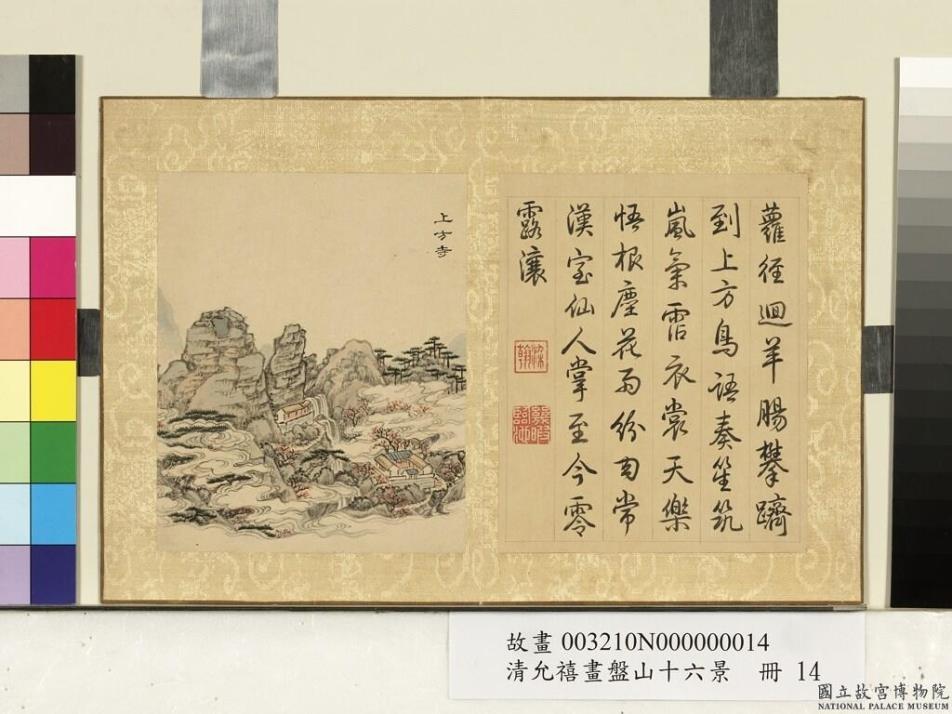 上方寺
蘿徑迴羊腸攀躋
到上方鳥語奏笙筑
嵐氣霑衣裳天樂
悟根塵花雨紛常
漢宮仙人掌至今零
露瀼
故畫 003210N000000014
清允禧畫盤山十六景 冊 14
國立故宮博物院
NATIONAL PALACE MUSEUM